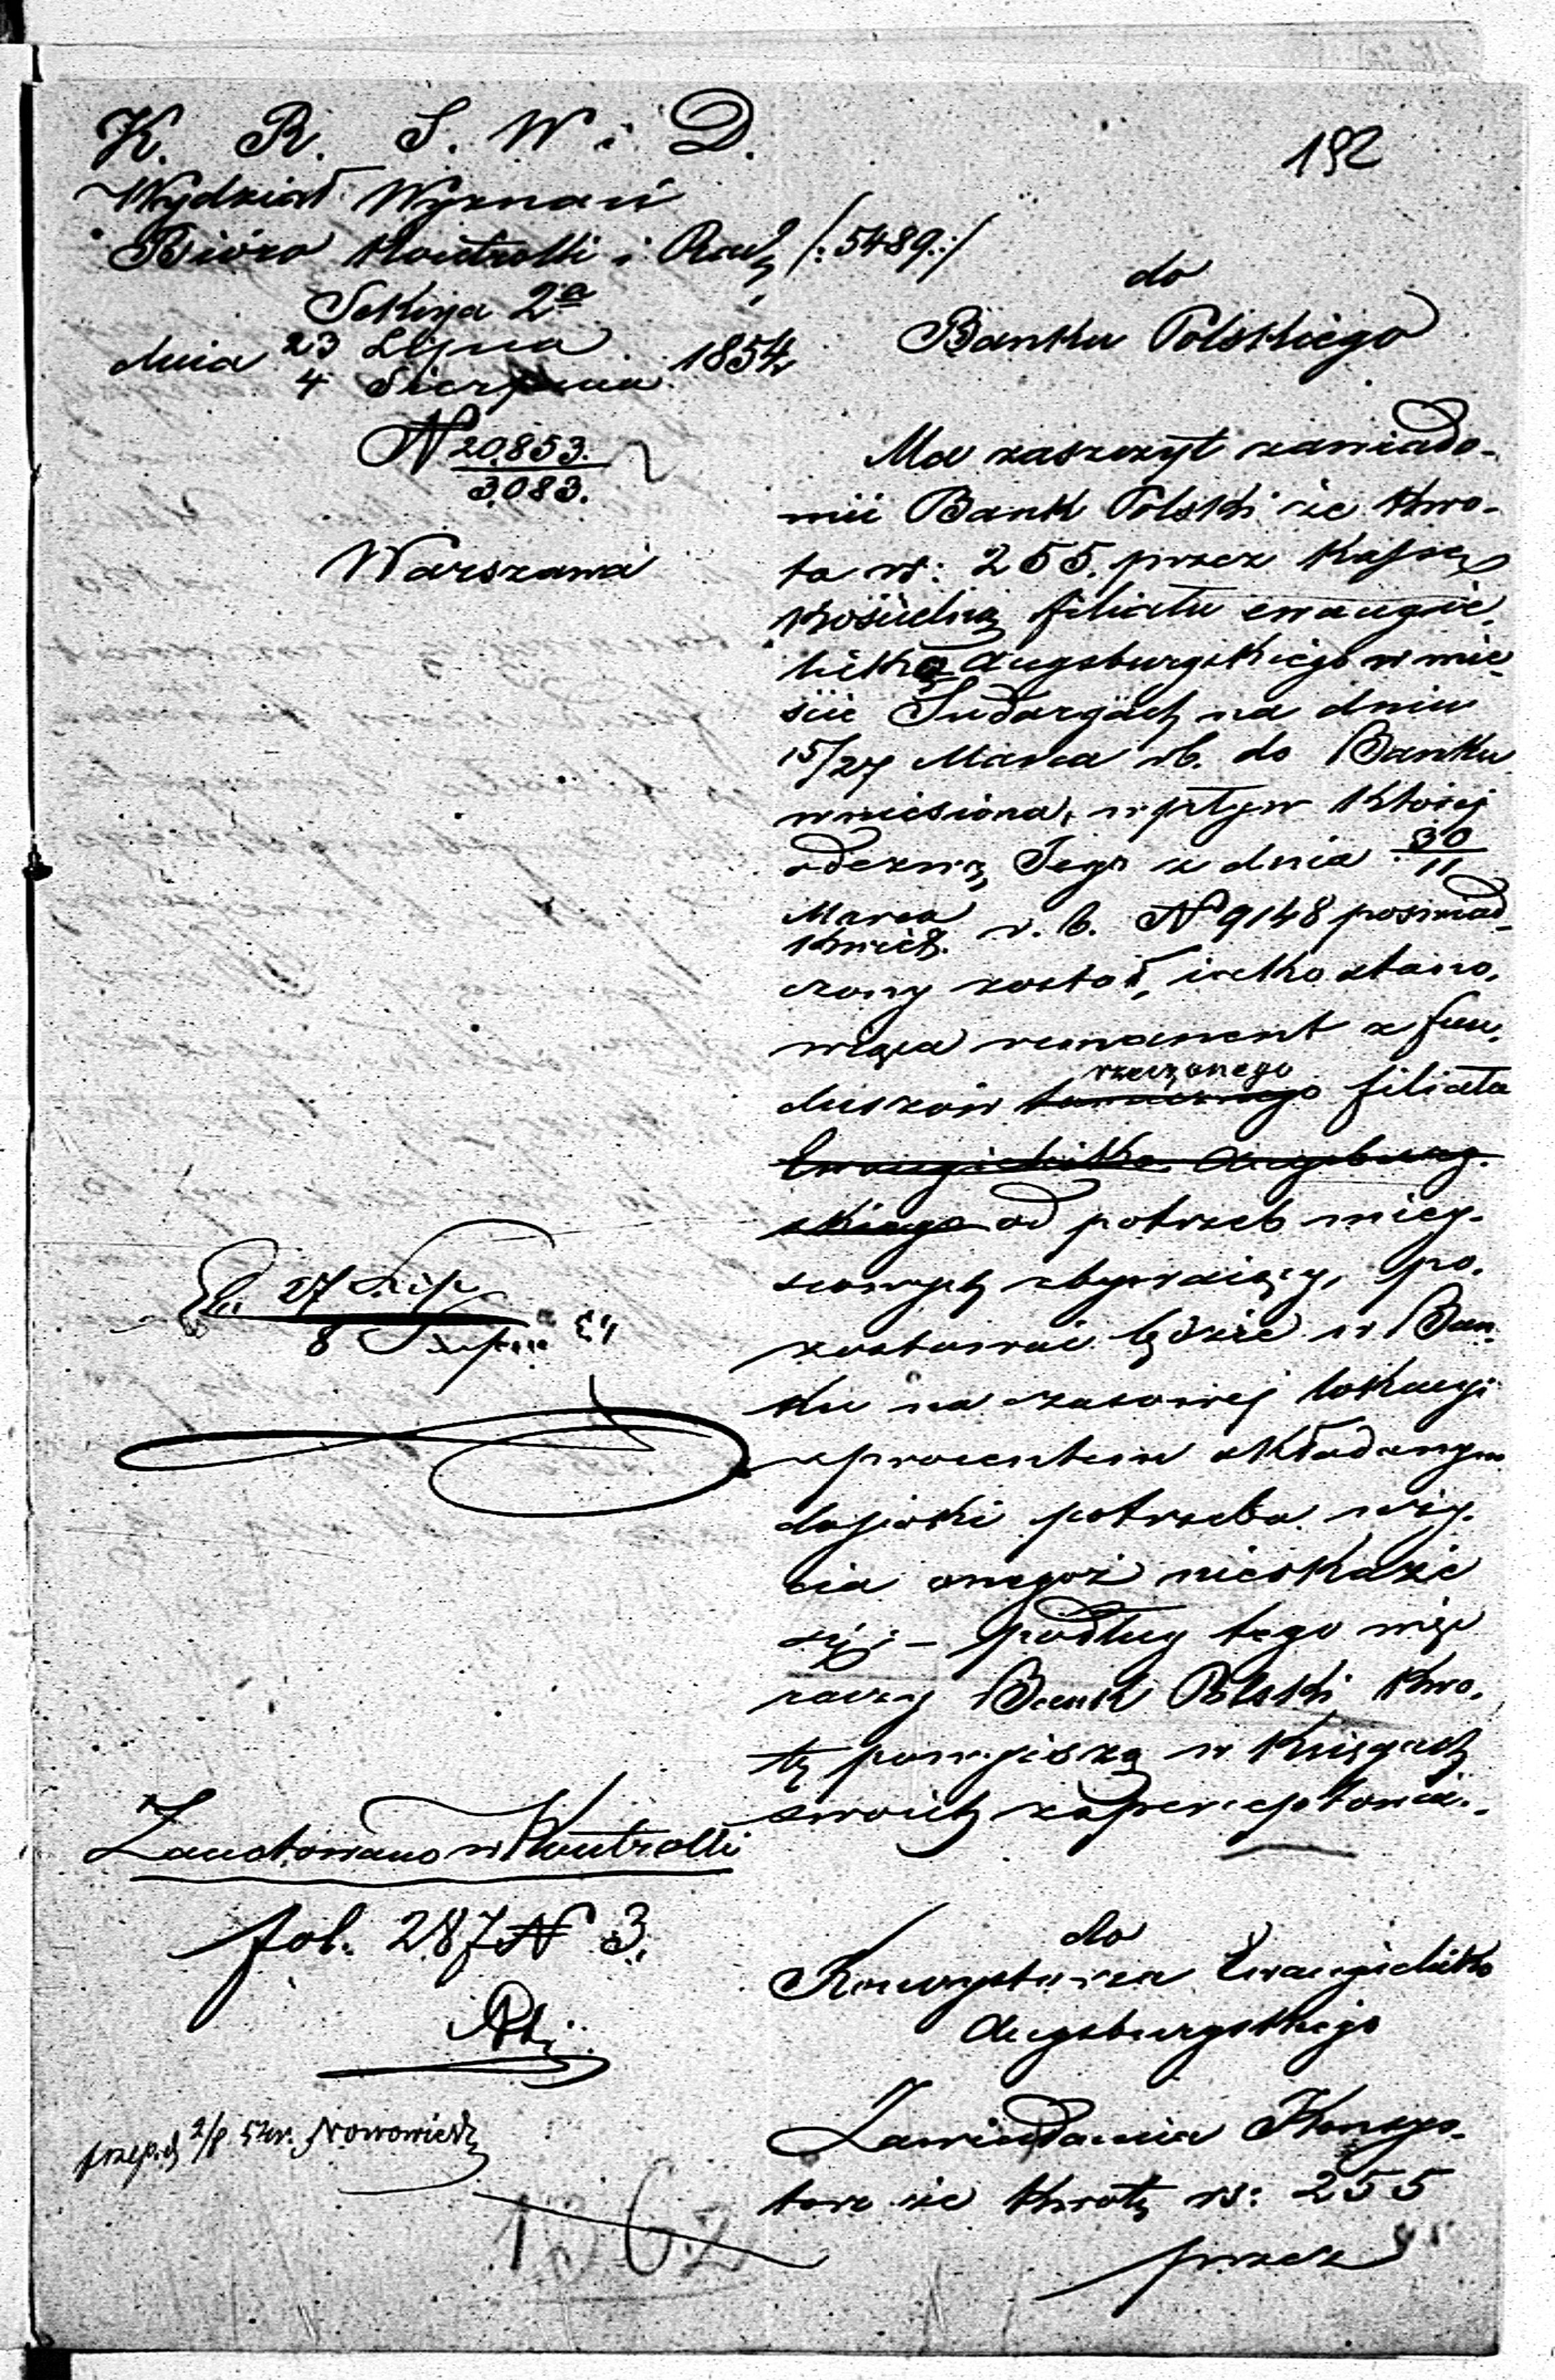 K. R. S. W i D.
192
Wydział Wyznań
Bióro Kontrolli i Rach /:5489:/
Sekcya 2a
dnia 23 Lipca
4 Sierpnia 1854
N 20,853.
3,083.
Warszawa
do
Banku Polskiego
Ma zaszczyt zawiado-
mić Bank Polski że kwo-
ta rs: 255. przez Kassę
Kościelną filiału ewangie-
licko Augsburgskiego w mie-
ście Sudargach na dniu
15/27 Marca rb. do Banku
wniesiona, wpływ której
odezwą Jego z dnia 30
11
Marca
Kwiet. r. b. N 9148 poświad-
czony został, jako stano-
wiąca remanent z fun-
duszów rzeczonego filiału
Ewangielicko Augsburg-
skiego od potrzeb miey-
scowych zbywaiący, po-
zostawać będzie w Ban-
ku na czasowej lokacyi
z procentem składanym
dopóki potrzeba uży-
cia onegoż nieokaże
się; – podług tego więc
raczy Bank Polski kwo-
tę powyższą w Księgach
swoich zaperceptować.
27 Lip
8 Sierpnia 54
Zanotowano w Kontrolli
fol. 287 N 3.
do
Konsystorza Ewangielicko
Augsburgskiego
Zawiadamia Konsys-
torz że kwotę rs: 255
przez
przep. d 2/8 54r. Nowowiejs
1362